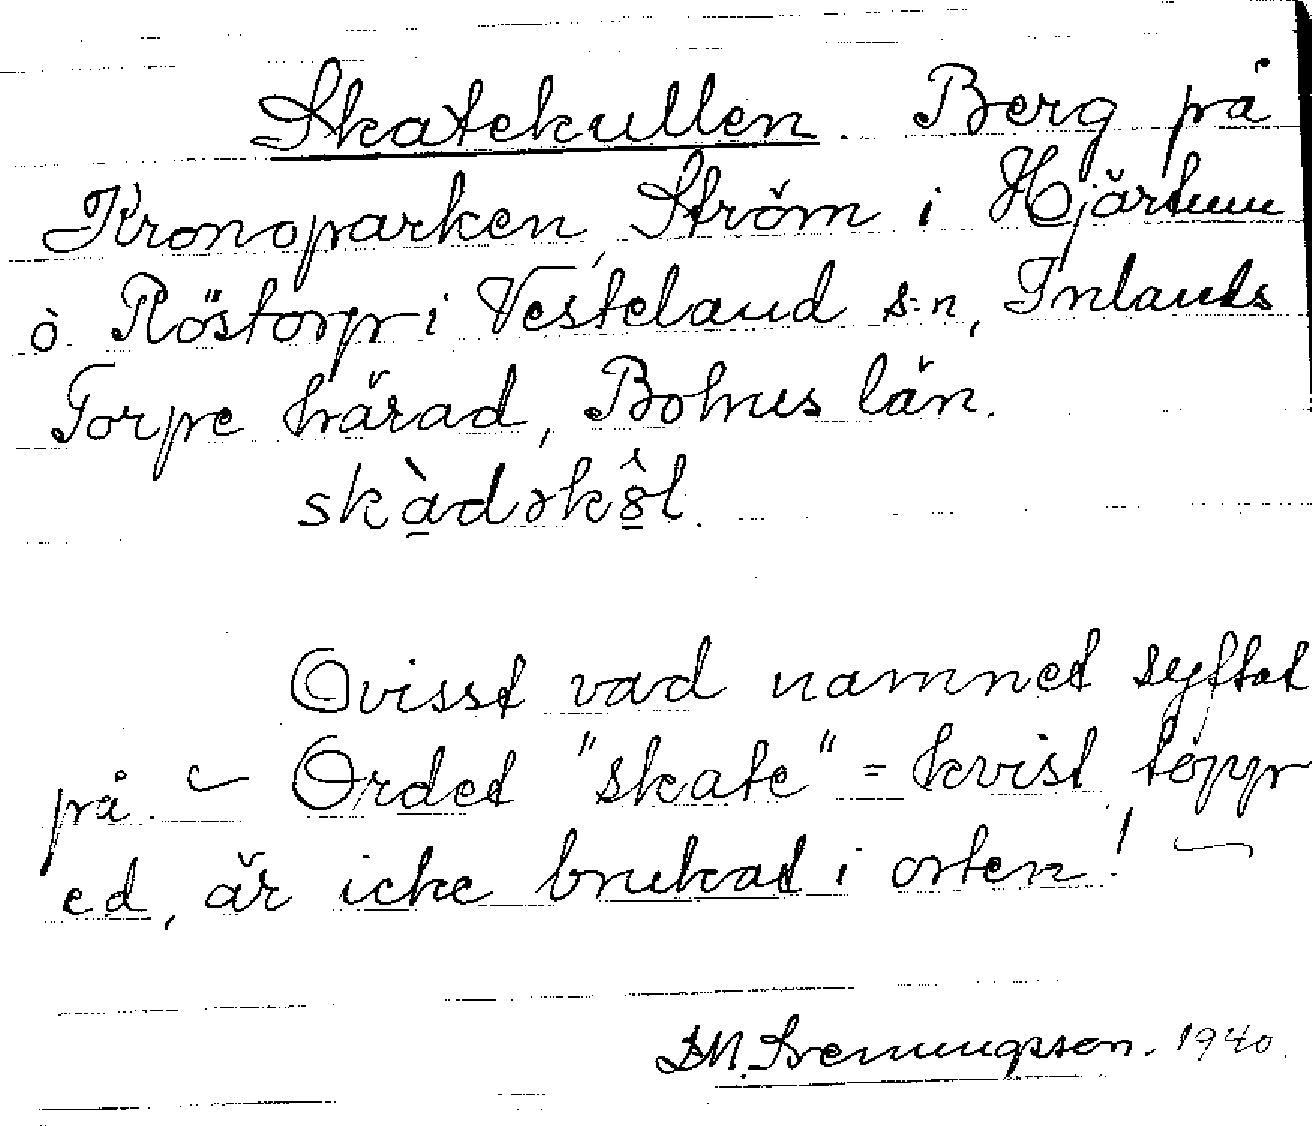 Skatekullen. Berg på
Kronoparken, Ström i Hjärtum
o. Röstorp i Vesteland s:n, Inlands
Torpe härad, Bohus län.
skàdəkô̂l.
Ovisst vad namnet syftat
på. — Ordet "skate" = kvist topp
ed, är icke brukat i orten! —
Svenungsson. 1940.